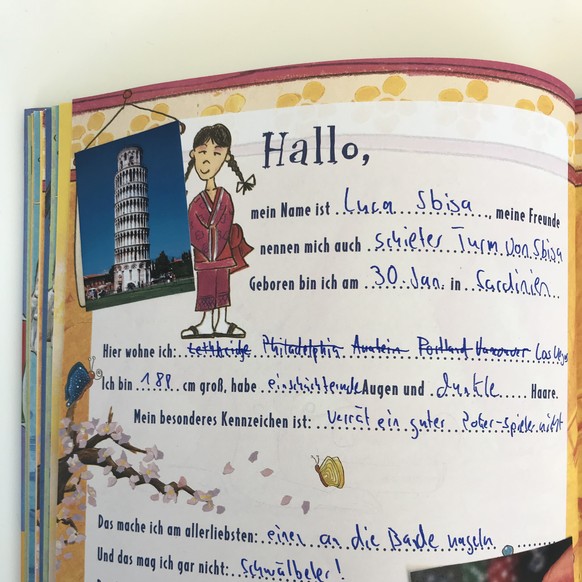 Hallo,
mein Name ist Luca Sbisa, meine Freunde
nennen mich auch schiefer Turm von Sbisa
Geboren bin ich am 30. Jan. in Sardinien
Hier wohne ich: Lethbridge Philadelphia Anaheim Portland Vancouver Las Vegas
Ich bin 188 cm groß, habe einschüchternde Augen und dunkle Haare.
Mein besonderes Kennzeichen ist: Verrät ein guter Poker-spieler nicht
Das mache ich am allerliebsten: einen an die Bande nageln
Und das mag ich gar nicht: Schwalbeler!